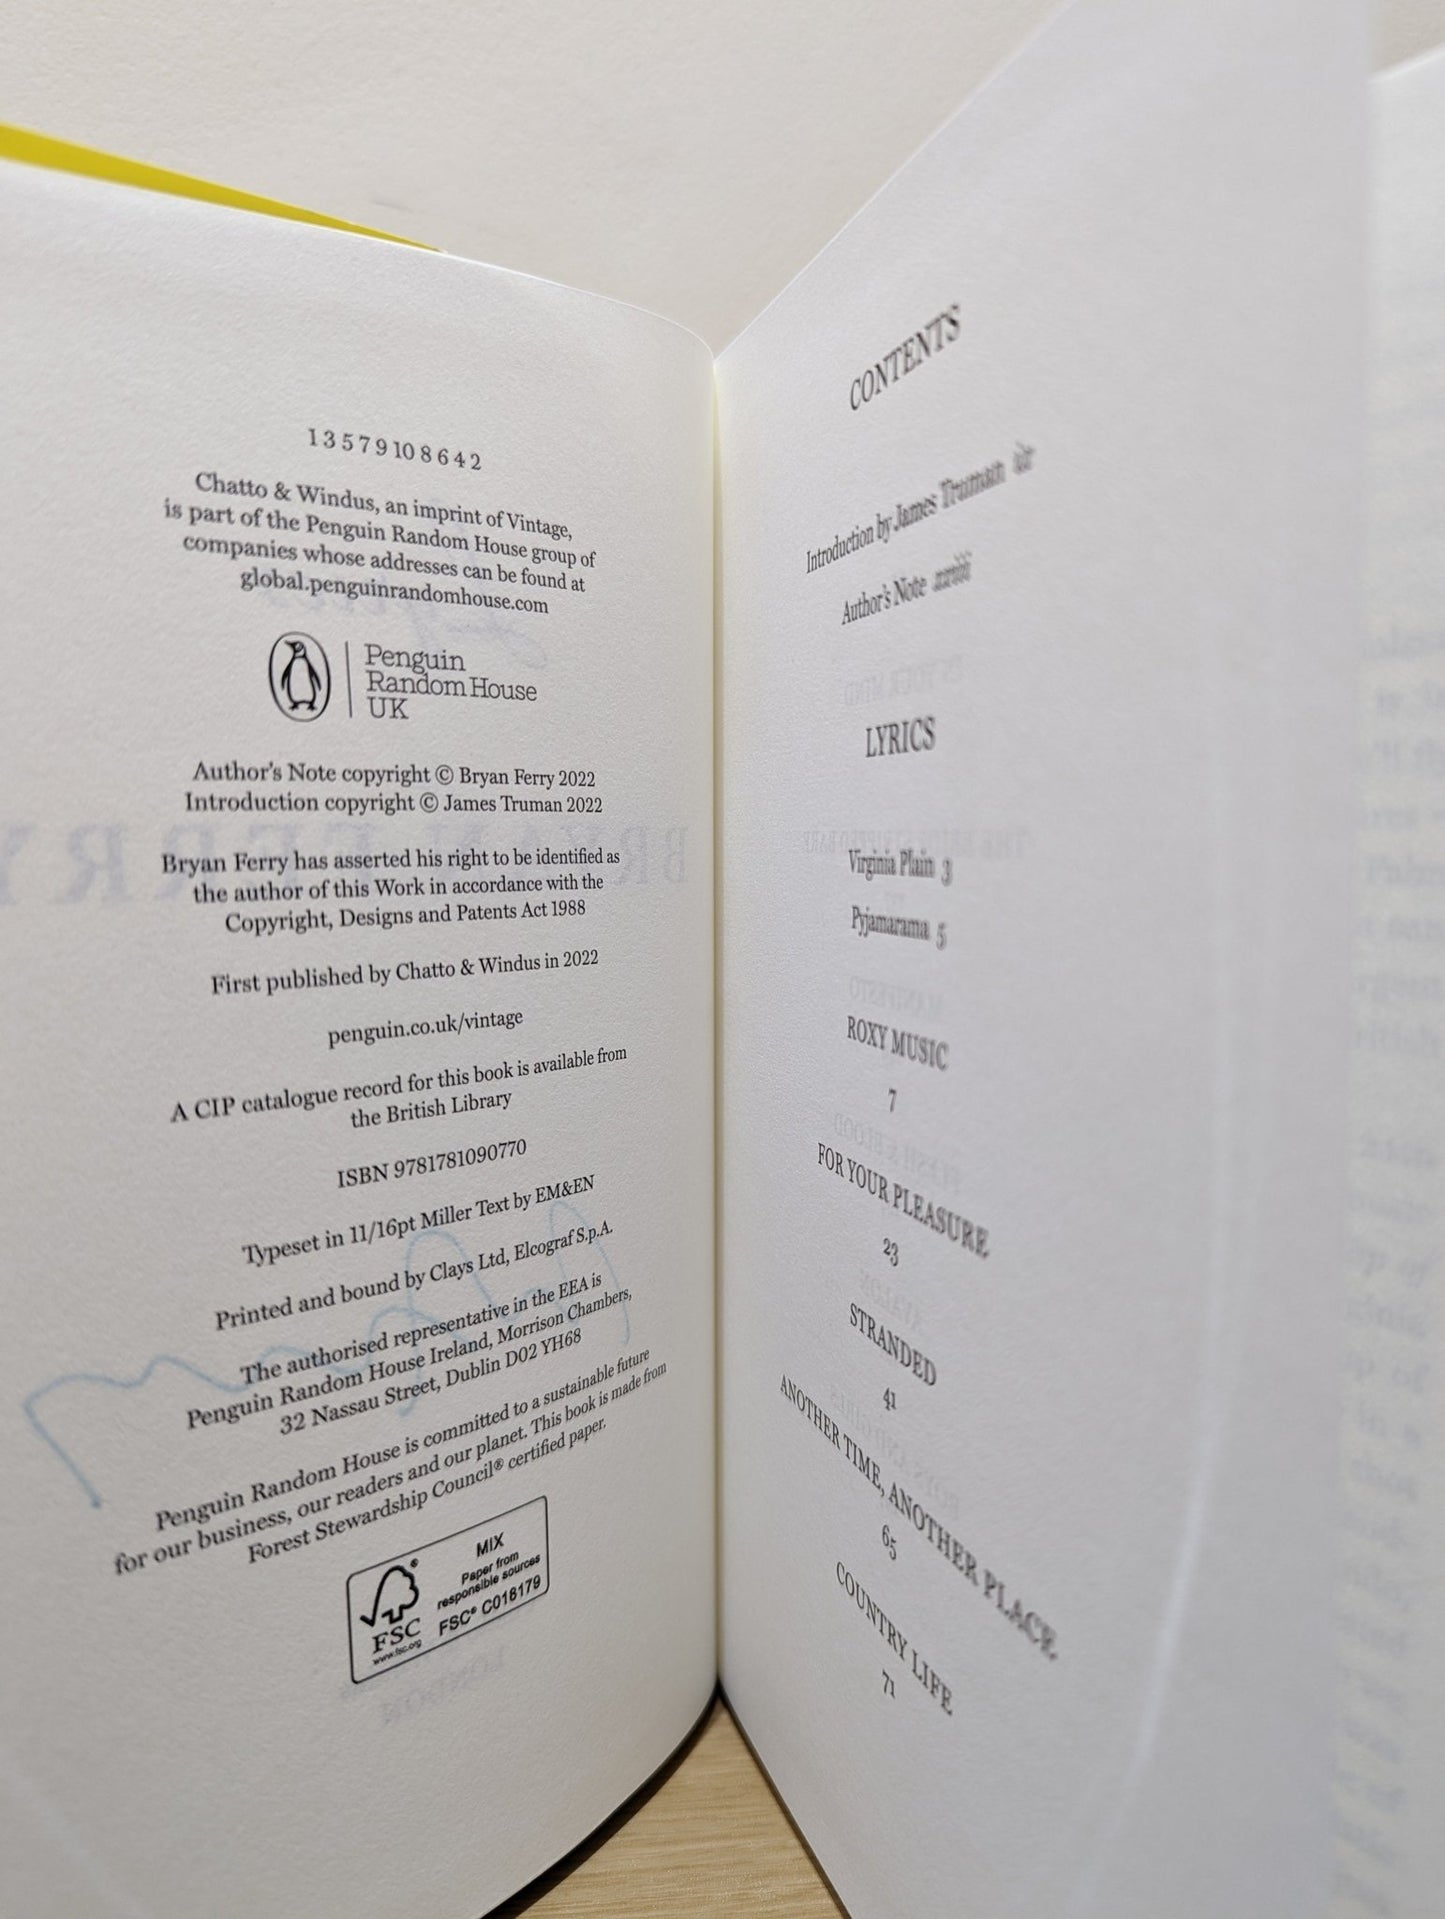 1 3 5 7 9 10 8 6 4 2
Chatto & Windus, an imprint of Vintage,
is part of the Penguin Random House group of
companies whose addresses can be found at
global.penguinrandomhouse.com
Penguin
Random House
UK
Author's Note copyright © Bryan Ferry 2022
Introduction copyright © James Truman 2022
Bryan Ferry has asserted his right to be identified as
the author of this Work in accordance with the
Copyright, Designs and Patents Act 1988
First published by Chatto & Windus in 2022
penguin.co.uk/vintage
A CIP catalogue record for this book is available from
the British Library
ISBN 9781781090770
Typeset in 11/16pt Miller Text by EM&EN
Printed and bound by Clays Ltd, Elcograf S.p.A.
The authorised representative in the EEA is
Penguin Random House Ireland, Morrison Chambers,
32 Nassau Street, Dublin D02 YH68
Penguin Random House is committed to a sustainable future
for our business, our readers and our planet. This book is made from
Forest Stewardship Council® certified paper.
FSC
www.fsc.org
MIX
Paper from
responsible sources
FSC® C018179
CONTENTS
Introduction by James Truman
Author's Note
LYRICS
Virginia Plain 3
Pyjamarama 5
ROXY MUSIC
7
FOR YOUR PLEASURE
23
STRANDED
41
ANOTHER TIME, ANOTHER PLACE
65
COUNTRY LIFE
71